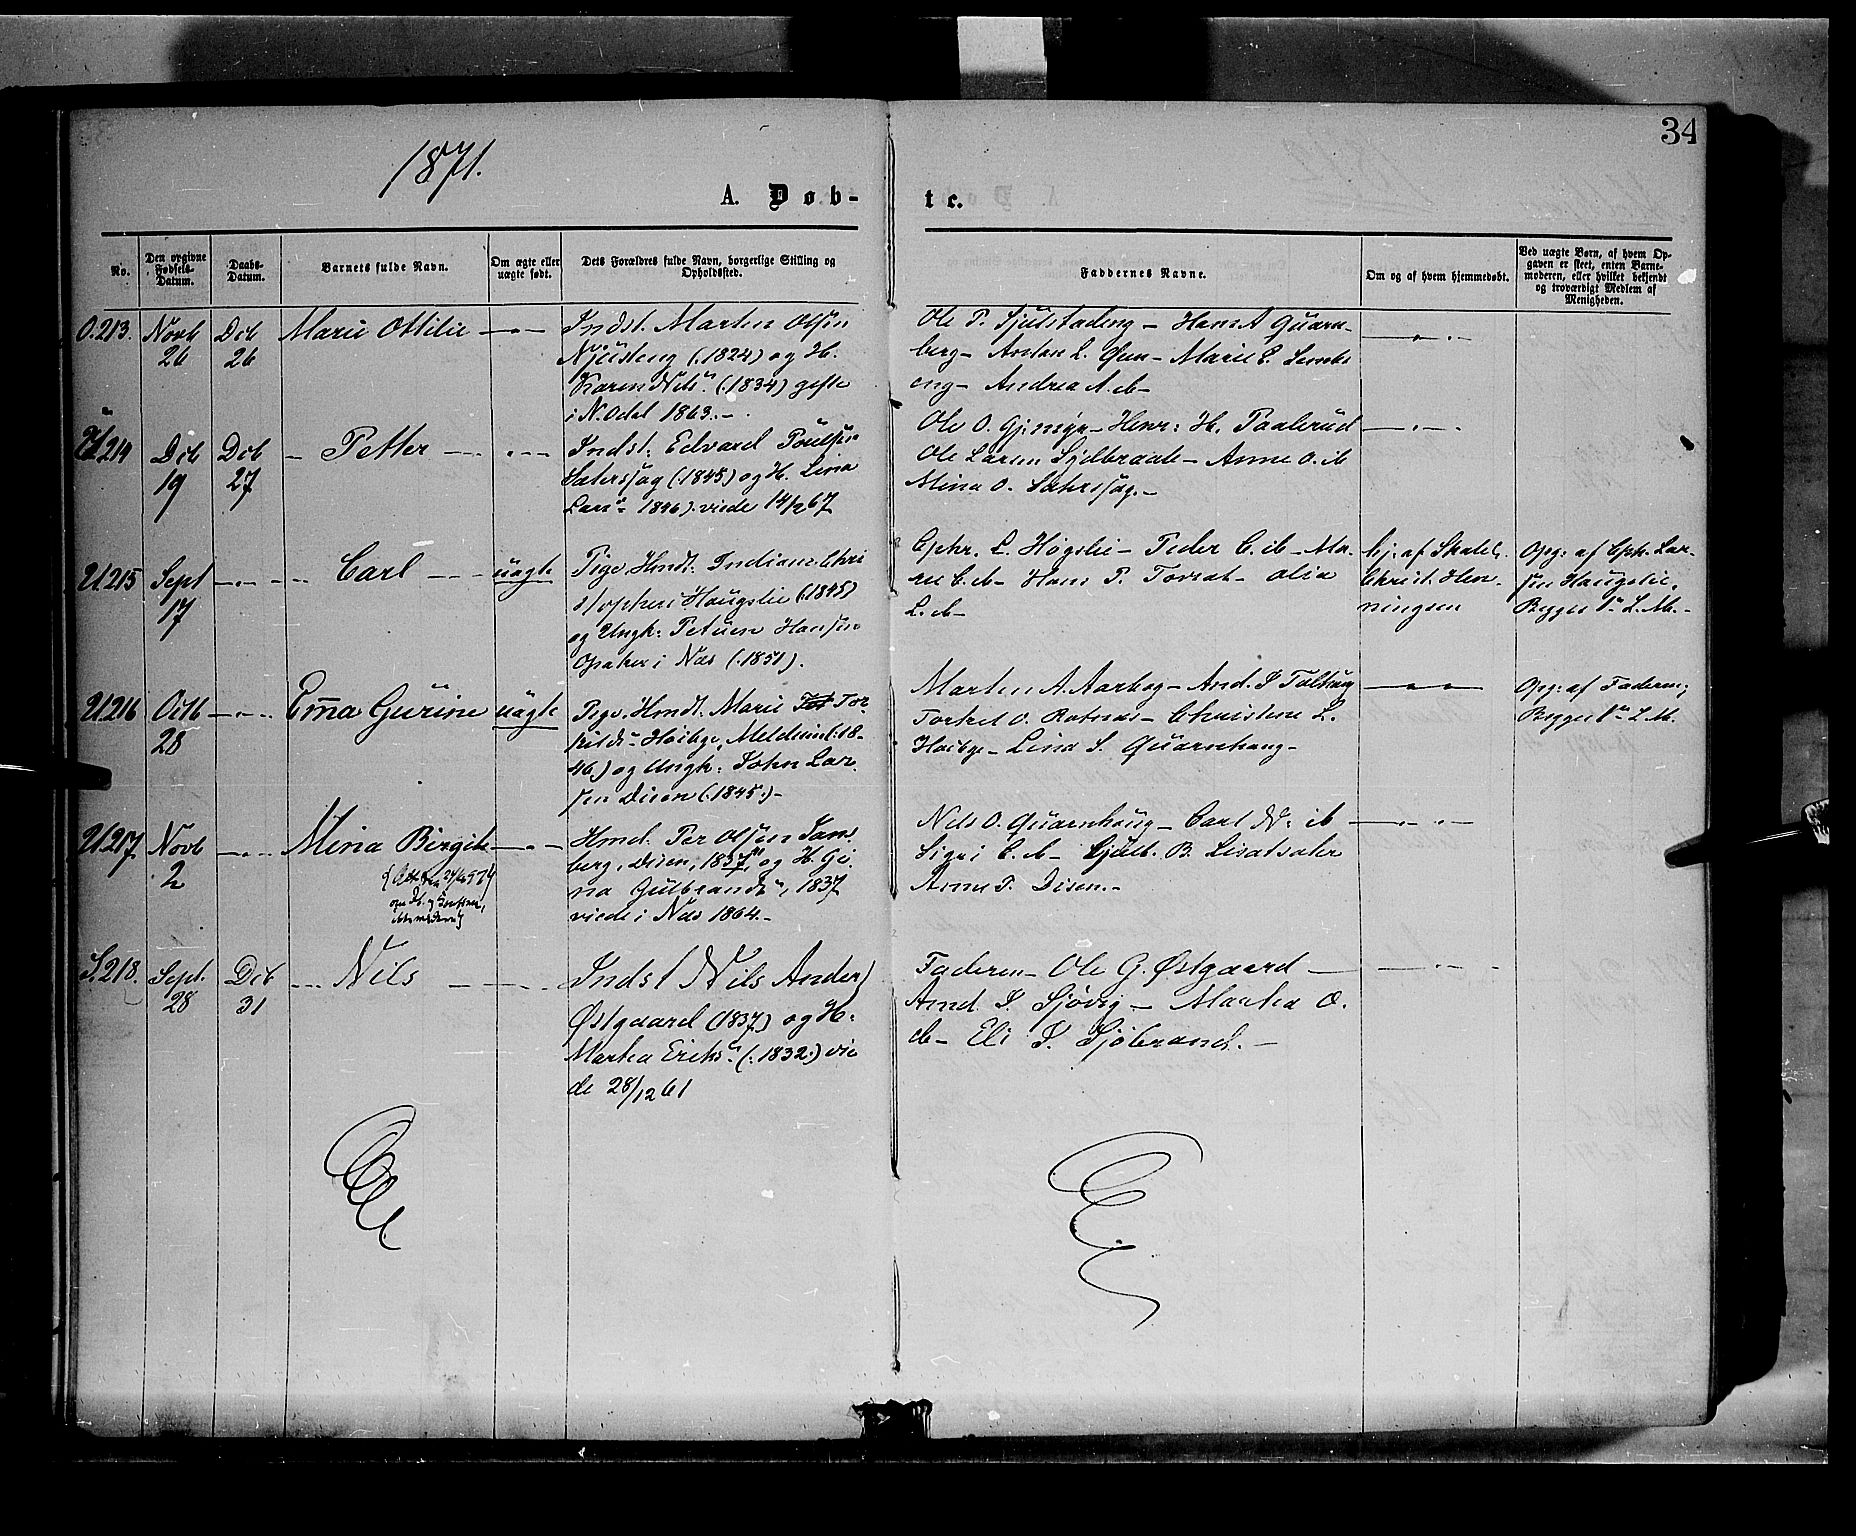 34
1871.
A. Døb-
te.
No.
Den opgivne Fødsels-Datum.
Daabs-Datum.
Barnets fulde Navn.
Om ægte eller uægte født.
Dets Forældres fulde Navn, borgerlige Stilling og Opholdssted.
Faddernes Navne.
Om og af hvem hjemmedøbt.
Ved uægte Børn, af hvem Opgaven er skeet, enten Barnemoderen, eller hvilket bekjendt og troværdigt Medlem af Menigheden.
O.213. Novb 26 Dcb 26 Marie Ottilie
Indst. Marten Olsen
Njusteng (:1824) og H.
Karen Nilsn (:1834) gifte
i N. Odal 1863.-
Ole P. - Hans A Quarn-
berg - Marie
eng - Andrea A. ib -
U214 Dcb 19 Dcb 27 Petter
Indst. Edvard Poulsen
Sætersjøg (:1845) og H. Lina
Larsn 1846) viede 14/12 67
Ole O. Gjimyr - Henr: H. Paalerud
Ole Larsen Sylbraate - Anne O. ib
Mina O. Sætersjøg.-
U215 Sept 17 Carl uægte
Pige. Hmdt. Indiane Chri
stophers Haugslie (:1845)
og Ungk: Petter Hansen
Opaker i Næs (:1851).
Cphr. L. Høgslie - Peder C. ib - Ma-
rie C. ib - Hans P. Torsæt - Olia
L. ib -
hj. af Skolel.
Christ. Hen-
ningsen
Opg: af Cph. Lar-
sen Haugslie,
Begges 1ste L. M.-
U216 Octb 28 Emma Gurine uægte
Pige. Hmdt. Marie Tor-
kilds Hoibye, Meldum (:18-
46) og Ungk: John Lar-
sen Disen (:1845:)-
Marten A. Aarhog - And. I Toltorp
Torkel O. - Christine L.
Hoibye - Lina S. Quarnhaug -
Opg: af Faderen;
Begges 1ste L. M.
U217 Novb 2 Mina Birgite
Hmd. Per Olsen Tans
berg, Disen, 1837, og H. Gi-
na Gulbrandsn, 1837
viede i Næs 1864.-
Nils O. Quarnhaug - Carl N: ib -
Sigri C. ib - Gjulb. B. Lisætsæter
Arne P. Disen.-
S.218. Sept. 28 Dcb 31 Nils
Indst Nils Anders
Østgaard (1837) og H.
Marthea Eriksn (:1832:) vie
de 28/12 61
Faderen - Ole G. Østgaard -
Amd. I. Sjøvig - Marthea O.
ib - Eli I. Sjöbrand. -